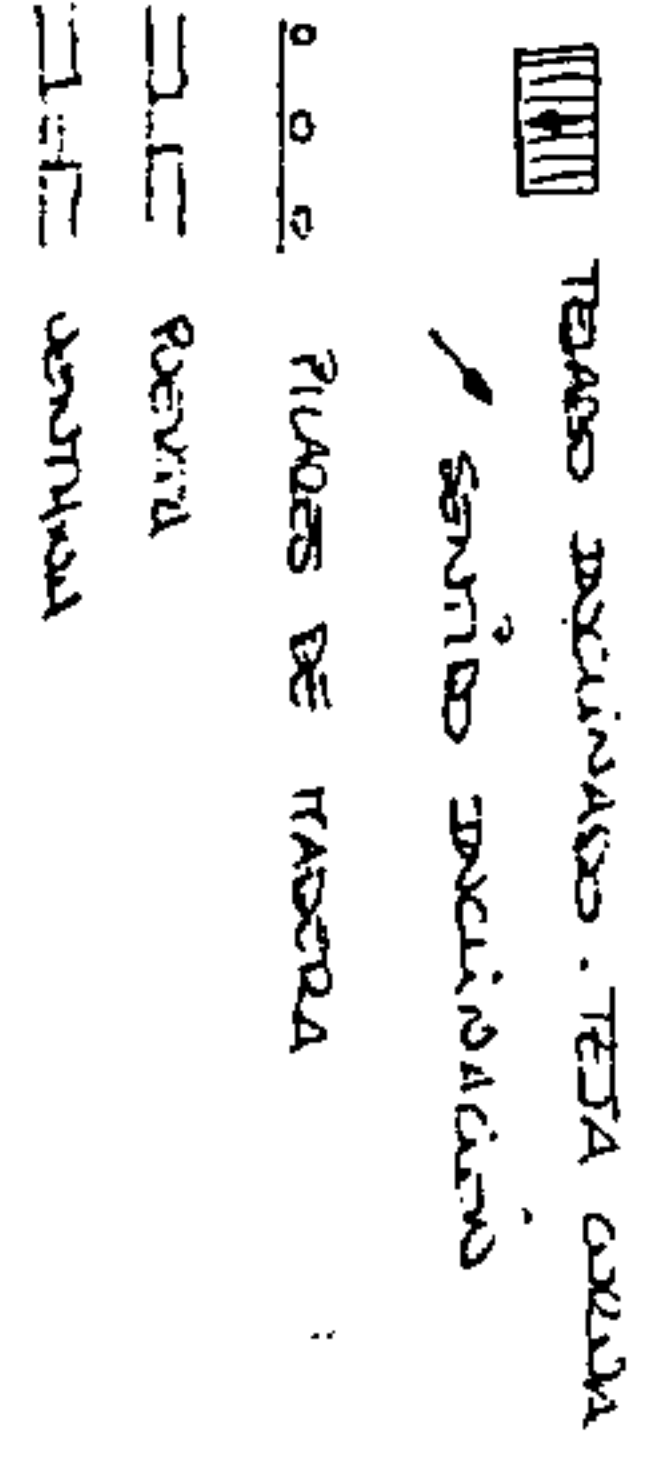 TEJADO INCLINADO. TEJA
SENTIDO INCLINACIÓN
PILARES DE MADERA
PUERTA
VENTANA